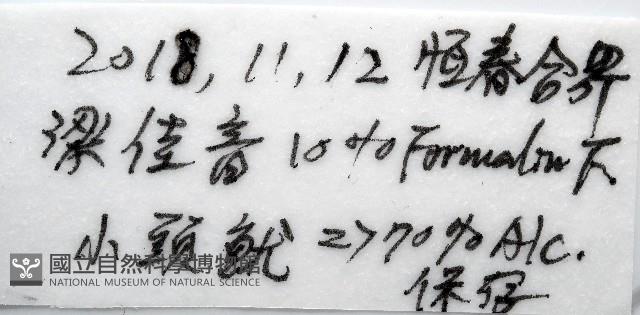 2018, 11, 12 恒春合界
梁佳音 10% Formalin 下
小頭魷 => 70% Alc.
保存
國立自然科學博物館
NATIONAL MUSEUM OF NATURAL SCIENCE